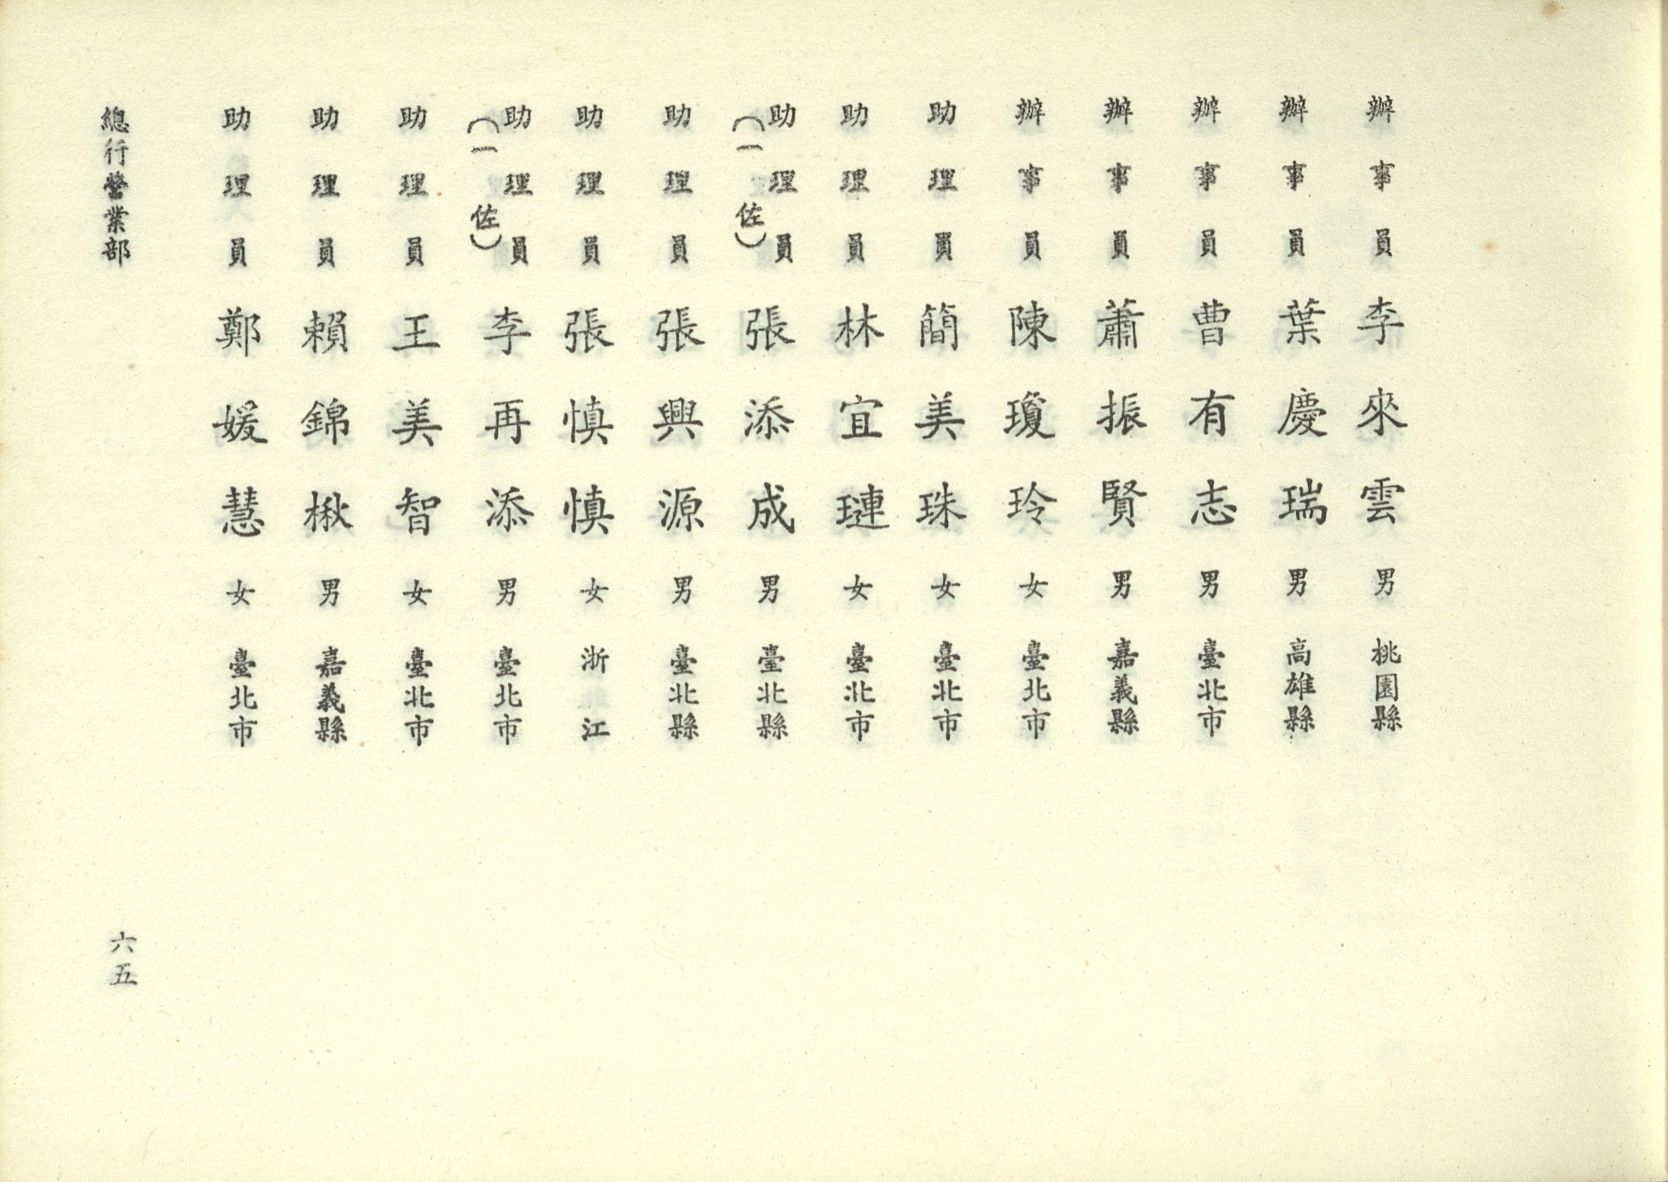 辦事員 李來雲 男 桃園縣
辦事員 葉慶瑞 男 高雄縣
辦事員 曹有志 男 臺北市
辦事員 蕭振賢 男 嘉義縣
辦事員 陳瓊玲 女 臺北市
助理員 簡美珠 女 臺北市
助理員 林宜璉 女 臺北市
助理員（一佐） 張添成 男 臺北縣
助理員 張興源 男 臺北縣
助理員 張慎慎 女 浙江
助理員（一佐） 李再添 男 臺北市
助理員 王美智 女 臺北市
助理員 賴錦楸 男 嘉義縣
助理員 鄭媛慧 女 臺北市
總行營業部
六五